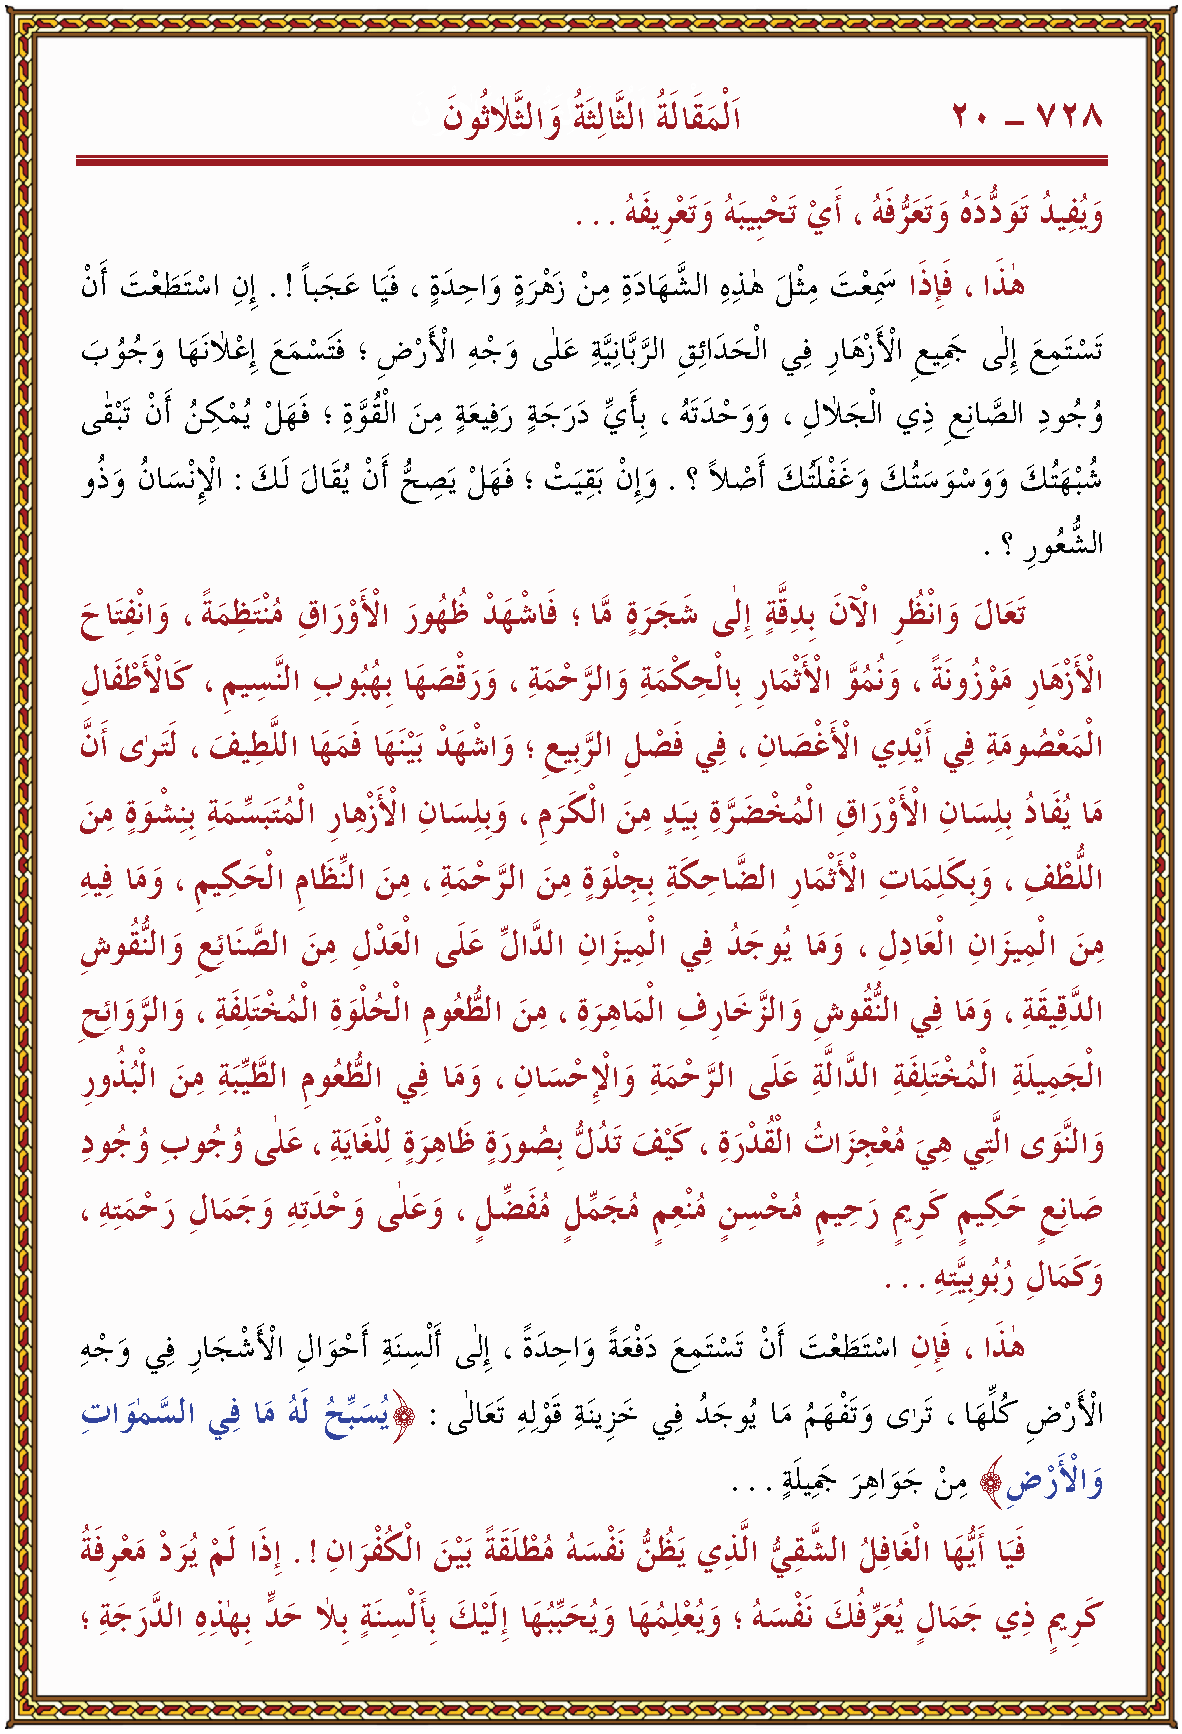 ٧٢٨ – ٢٠ اَلْمَقَالَةُ الثَّالِثَةُ وَالثَّلَاثُونَ
وَيُفِيدُ تَوَدُّدَهُ وَتَعَرُّفَهُ ، أَيْ تَحْبِيبَهُ وَتَعْرِيفَهُ . . .
هٰذَا ، فَإِذَا سَمِعْتَ مِثْلَ هٰذِهِ الشَّهَادَةِ مِنْ زَهْرَةٍ وَاحِدَةٍ ، فَيَا عَجَباً ! . إِنِ اسْتَطَعْتَ أَنْ
تَسْتَمِعَ إِلٰى جَمِيعِ الْأَزْهَارِ فِي الْحَدَائِقِ الرَّبَّانِيَّةِ عَلٰى وَجْهِ الْأَرْضِ ؛ فَتَسْمَعَ إِعْلَانَهَا وَجُوَبَ
وُجُودِ الصَّانِعِ ذِي الْجَلَالِ ، وَوَحْدَتَهُ ، بِأَيِّ دَرَجَةٍ رَفِيعَةٍ مِنَ الْقُوَّةِ ؛ فَهَلْ يُمْكِنُ أَنْ تَبْقٰى
شُبْهَتُكَ وَوَسْوَسَتُكَ وَغَفْلَتُكَ أَصْلاً ؟ . وَإِنْ بَقِيَتْ ؛ فَهَلْ يَصِحُّ أَنْ يُقَالَ لَكَ : الْإِنْسَانُ وَذُو
الشُّعُورِ ؟ .
تَعَالَ وَانْظُرِ الْآنَ بِدِقَّةٍ إِلٰى شَجَرَةٍ مَّا ؛ فَاشْهَدْ ظُهُورَ الْأَوْرَاقِ مُنْتَظِمَةً ، وَانْفِتَاحَ
الْأَزْهَارِ مَوْزُونَةً ، وَنُمُوَّ الْأَثْمَارِ بِالْحِكْمَةِ وَالرَّحْمَةِ ، وَرَقْصَهَا بِهُبُوبِ النَّسِيمِ ، كَالْأَطْفَالِ
الْمَعْصُومَةِ فِي أَيْدِي الْأَغْصَانِ ، فِي فَصْلِ الرَّبِيعِ ؛ وَاشْهَدْ بَيْنَهَا فَمَهَا اللَّطِيفَ ، لَتَرٰى أَنَّ
مَا يُفَادُ بِلِسَانِ الْأَوْرَاقِ الْمُخْضَرَّةِ بِيَدٍ مِنَ الْكَرَمِ ، وَبِلِسَانِ الْأَزْهِارِ الْمُتَبَسِّمَةِ بِنِشْوَةٍ مِنَ
اللُّطْفِ ، وَبِكَلِمَاتِ الْأَثْمَارِ الضَّاحِكَةِ بِجِلْوَةٍ مِنَ الرَّحْمَةِ ، مِنَ النِّظَامِ الْحَكِيمِ ، وَمَا فِيهِ
مِنَ الْمِيزَانِ الْعَادِلِ ، وَمَا يُوجَدُ فِي الْمِيزَانِ الدَّالِّ عَلَى الْعَدْلِ مِنَ الصَّنَائِعِ وَالنُّقُوشِ
الدَّقِيقَةِ ، وَمَا فِي النُّقُوشِ وَالزَّخَارِفِ الْمَاهِرَةِ ، مِنَ الطُّعُومِ الْحُلْوَةِ الْمُخْتَلِفَةِ ، وَالرَّوَائِحِ
الْجَمِيلَةِ الْمُخْتَلِفَةِ الدَّالَّةِ عَلَى الرَّحْمَةِ وَالْإِحْسَانِ ، وَمَا فِي الطُّعُومِ الطَّيِّبَةِ مِنَ الْبُذُورِ
وَالنَّوٰى الَّتِي هِيَ مُعْجِزَاتُ الْقُدْرَةِ ، كَيْفَ تَدُلُّ بِصُورَةٍ ظَاهِرَةٍ لِلْغَايَةِ ، عَلٰى وُجُوبِ وُجُودِ
صَانِعٍ حَكِيمٍ كَرِيمٍ رَحِيمٍ مُحْسِنٍ مُنْعِمٍ مُجَمِّلٍ مُفَضِّلٍ ، وَعَلٰى وَحْدَتِهِ وَجَمَالِ رَحْمَتِهِ ،
وَكَمَالِ رُبُوبِيَّتِهِ . . .
هٰذَا ، فَإِنِ اسْتَطَعْتَ أَنْ تَسْتَمِعَ دَفْعَةً وَاحِدَةً ، إِلٰى أَلْسِنَةِ أَحْوَالِ الْأَشْجَارِ فِي وَجْهِ
الْأَرْضِ كُلِّهَا ، تَرٰى وَتَفْهَمُ مَا يُوجَدُ فِي خَزِينَةِ قَوْلِهِ تَعَالٰى : ﴿يُسَبِّحُ لَهُ مَا فِي السَّمٰوَاتِ
وَالْأَرْضِ﴾ مِنْ جَوَاهِرَ جَمِيلَةٍ . . .
فَيَا أَيُّهَا الْغَافِلُ الشَّقِيُّ الَّذِي يَظُنُّ نَفْسَهُ مُطْلَقَةً بَيْنَ الْكُفْرَانِ ! . إِذَا لَمْ يُرَدْ مَعْرِفَةُ
كَرِيمٍ ذِي جَمَالٍ يُعَرِّفُكَ نَفْسَهُ ؛ وَيُعْلِمُهَا وَيُحَبِّبُهَا إِلَيْكَ بِأَلْسِنَةٍ بِلَا حَدٍّ بِهٰذِهِ الدَّرَجَةِ ؛